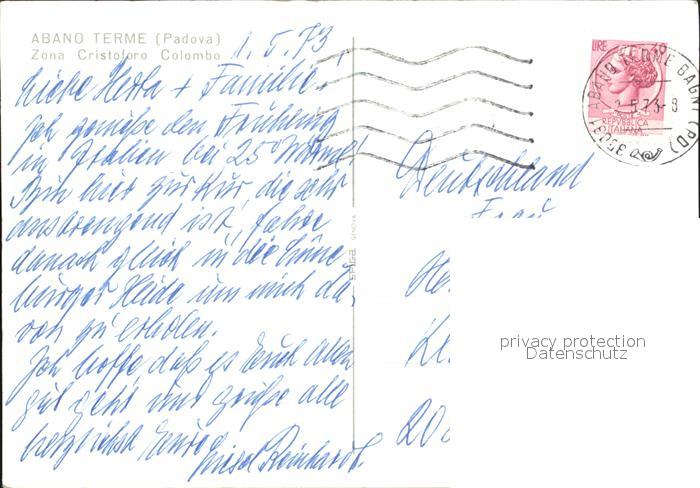 ABANO TERME (Padova)
Zona Cristoforo Colombo
1.5.73
Liebe Herta + Familie,
Ich genieße den Frühling
in Italien bei 25° Wärme.
Bin hier zur Kur, die sehr
anstrengend ist, fahre
danach gleich in die Lüne
burger Heide um mich da
von zu erholen.
Ich hoffe daß es Euch allen
gut geht und grüße alle
herzlichst Eure
Reinhardt
SPIGA GENOVA
LIRE
REPVBBLICA
ITALIANA
ABANO TERME BAGNI (PD)
2.5.73-8
35031
Deutschland
Frau
He
Ke
200
privacy protection
Datenschutz